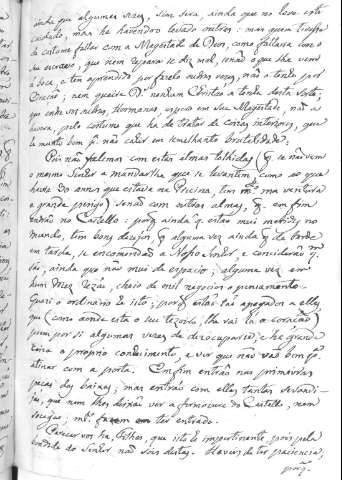 ainda que algumas vezes, sim sera, ainda que no leve este
cuidado, mas he havendoo levado outras: mas quem tivesse
de costume fallar com a Magestade de Deos, como fallaria com o
seu escravo, que nem repara se diz mal, senão o que lhe vem
á boca, e tem aprendido por fazelo outras vezes, não a tenho por
Oração; nem queira Dˢ nenhum Christão a tenha desta sorte:
que entre vos outras, Hermanas, espero em Sua Magestade, não a
havera, pelo costume que há de tratar de couzas interiores, que
he muito bom pª não cahir em semelhante brutalidade.
Pois não fallemos com estas almas tolhidas (q̃ se não vem
o mesmo Senhor a mandarlhe que se levantem, como ao que
havia 30 annos que estava na Piscina, tem mᵗᵃ má ventura
e grande perigo) senão com outras almas, q̃ em fim
entrão no Castello: porq̃ ainda q̃ estão mui metidas no
mundo, tem bons dezejos, q̃ alguma vez ainda q̃ de tarde
em tarde, se encomendão a Nosso Senhor, e considerão q.ᵐ
são, ainda que não mui de espacio; alguma vez em
hum Mez rezão, cheios de mil negocios o pensamento.
Quazi o ordinario he isto; porq̃ estão tão apegados a elles
que (como aonde está o seu tezouro, lhe vai lá o coração)
poem por si algumas vezes de dezoccuparse, e he grande
couza o proprio conhecimento, e ver que não vão bem pª
atinar com a porta. Em fim entrão nas primeiras
peças das baixas; mas entrão com elles tantas sevandi-
jas, que nem lhes deixão ver a formosura do Castello, nem
socegar, mᵗᵒ fazem em ter entrado.
Parecer vos ha, Filhas, que isto he impertinente, pois pela
bondade do Senhor não sois destas. Haveis de ter paciencia,
porq̃